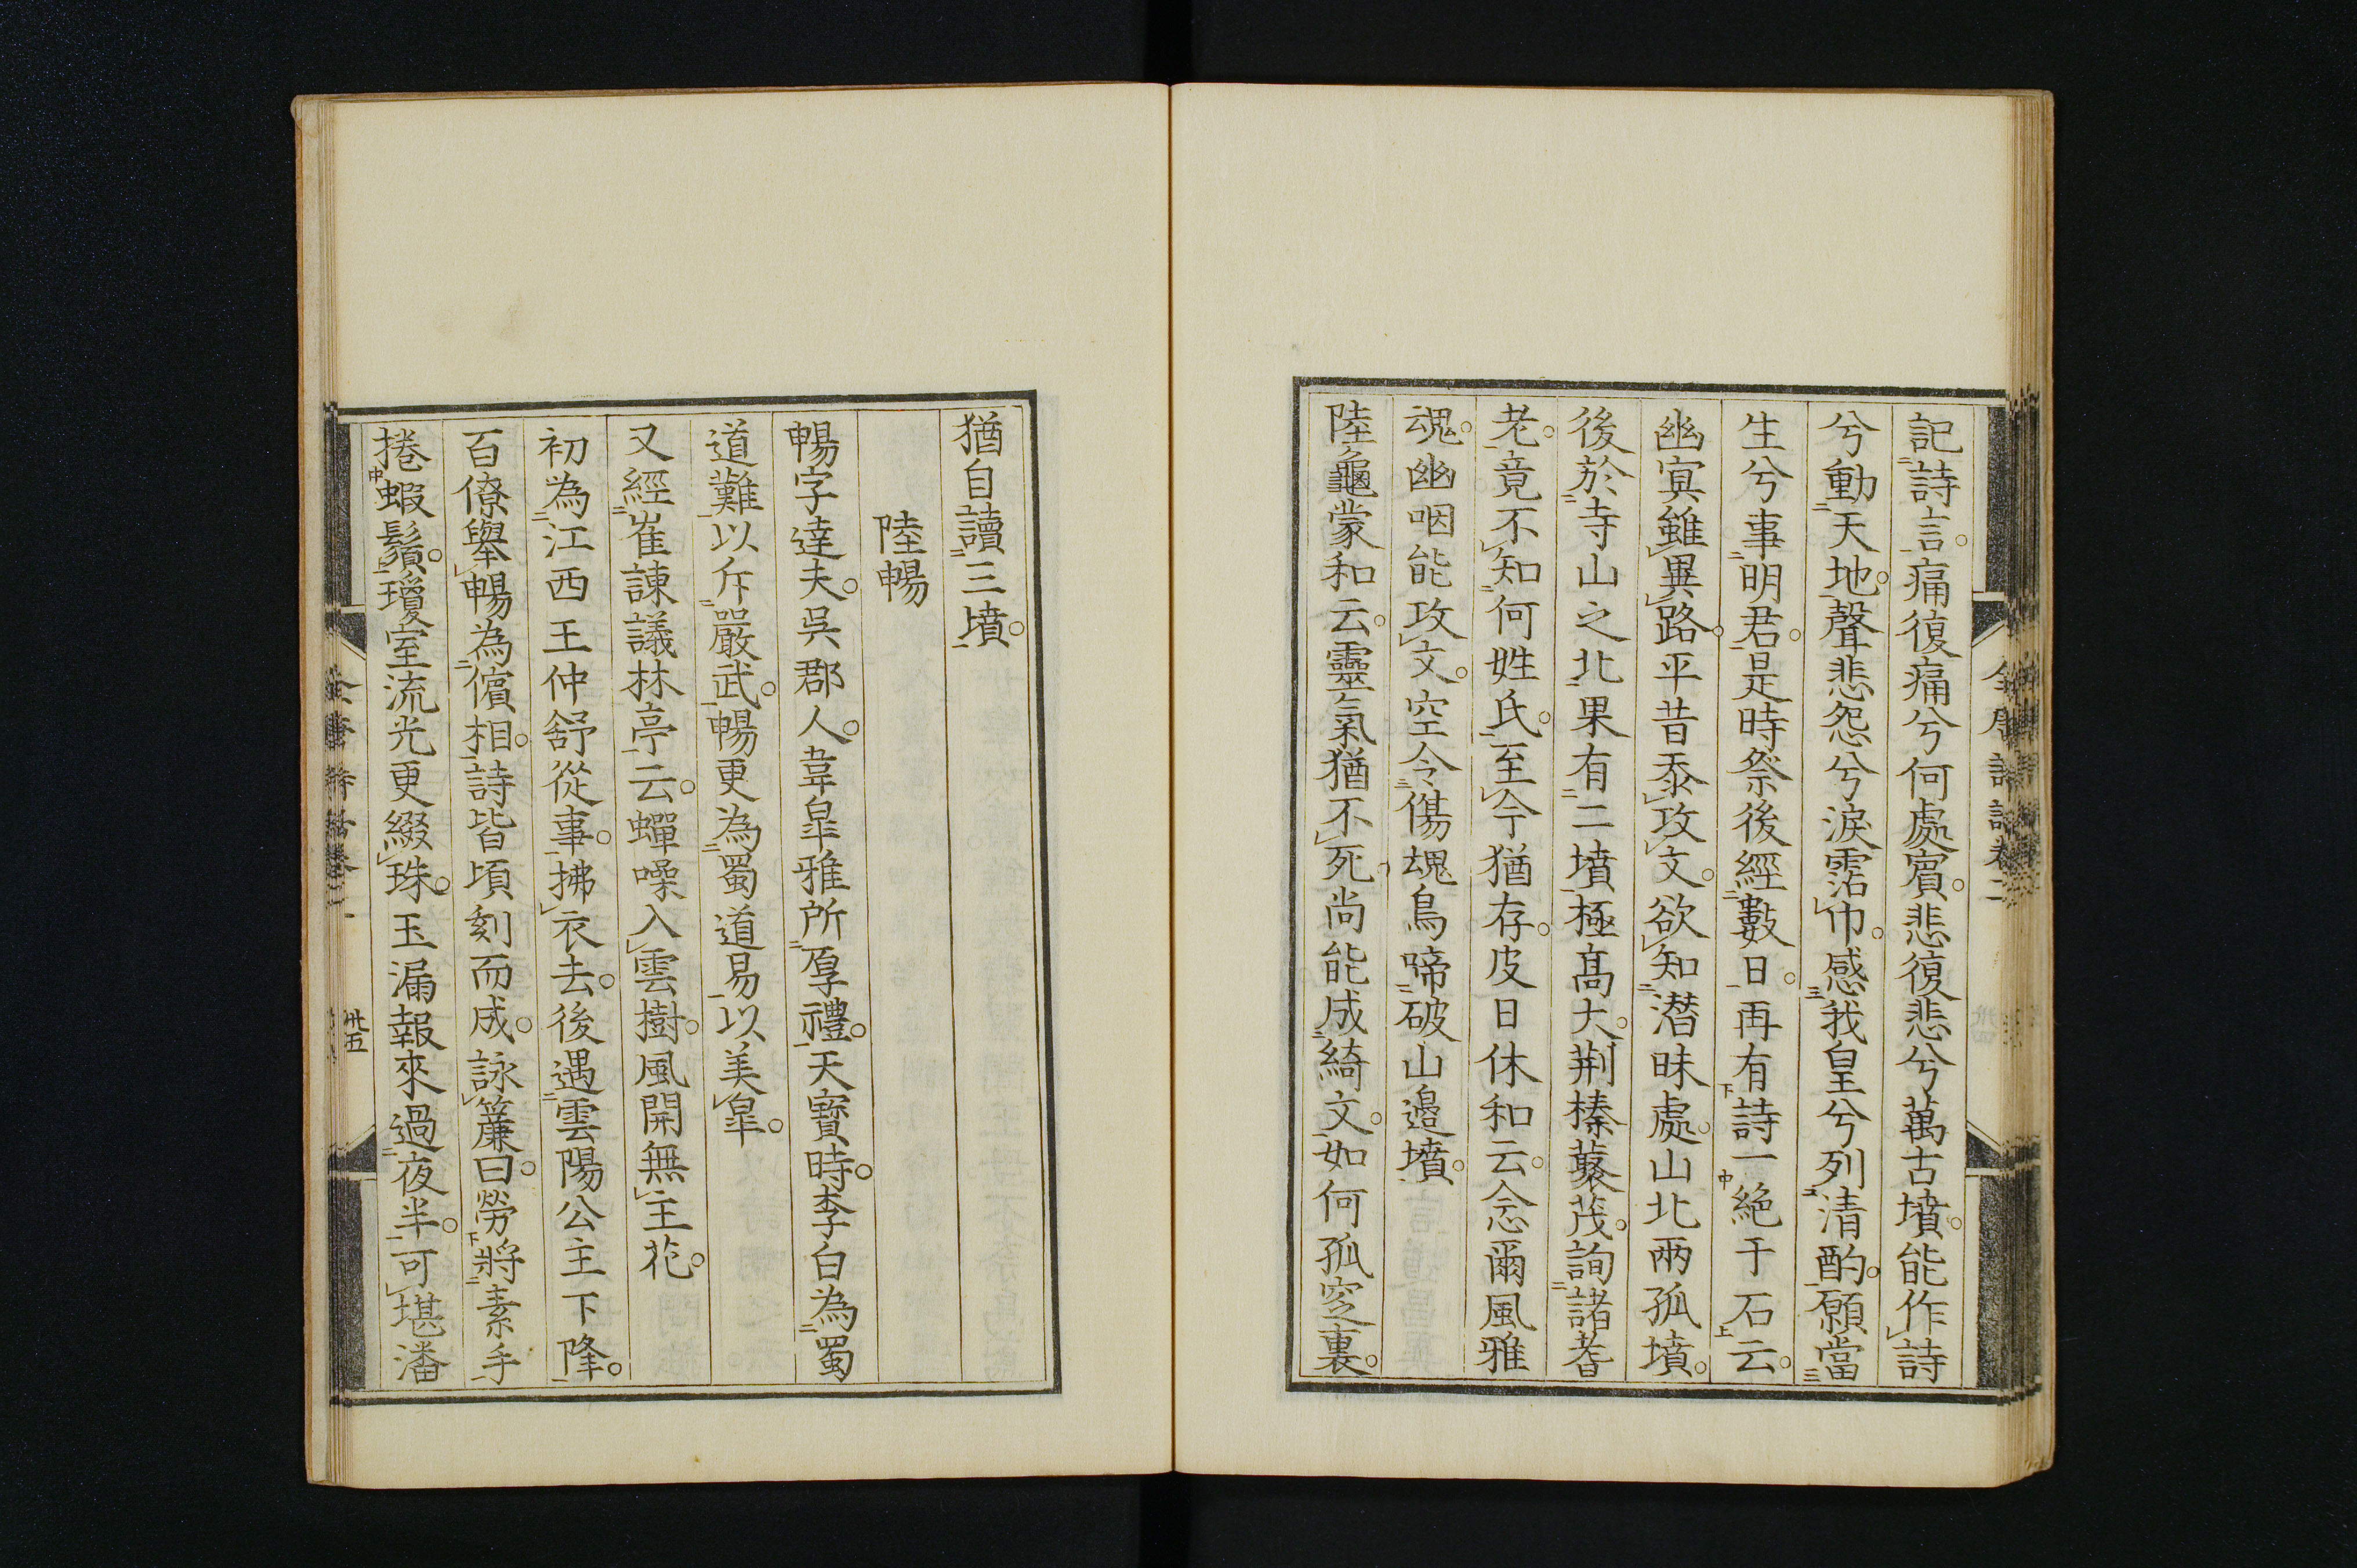 記詩言。痛復痛兮何處賓。悲復悲兮萬古墳。能作詩
兮動天地。聲悲怨兮淚霑巾。感我皇兮列清酌。願當
生兮事明君。是時祭後經數日。再有詩一絶于石云。
幽寘雖異路。平昔忝攻文。欲知潜昧處。山北兩孤墳。
後於寺山之北果有二墳極高大。荆榛藂茂。詢諸耆
老。竟不知何姓氏。至今猶存。皮日休和云。念爾風雅
魂。幽咽能攻文。空令傷魂鳥啼破山邉墳。
陸龜蒙和云。靈氣猶不死。尚能成綺文。如何孤窆裏。
猶自讀三墳。
陸暢
暢字達夫。吳郡人。韋皐雅所厚禮。天寶時。李白為蜀
道難以斥嚴武。暢更為蜀道易以美皐。
又經崔諫議林亭云。蟬噪入雲樹。風開無主花。
初為江西王仲舒從事。拂衣去。後遇雲陽公主下降。
百僚舉暢為儐相。詩皆頃刻而成。詠簾曰。勞將素手
捲蝦鬚。瓊室流光更綴珠。玉漏報來過夜半。可堪潘
全唐詩話卷二
卅五